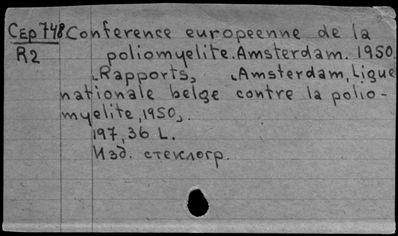 Сер748 Conference europeenne de la
R2 poliomyelite. Amsterdam. 1950.
"Rapports", "Amsterdam, Ligue
nationale belge contre la polio-
myelite, 1950".
197, 36 L.
Изд. стеклогр.